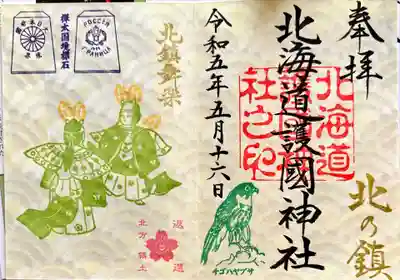 奉拝
北の鎮
北海道護國神社
北海道
護國神
社之印
令和五年五月十六日
チゴハヤブサ
北鎮舞楽
返還
北方領土
樺太国境標石
大日本帝国
境界
РОССІЯ
ГРАНИЦА